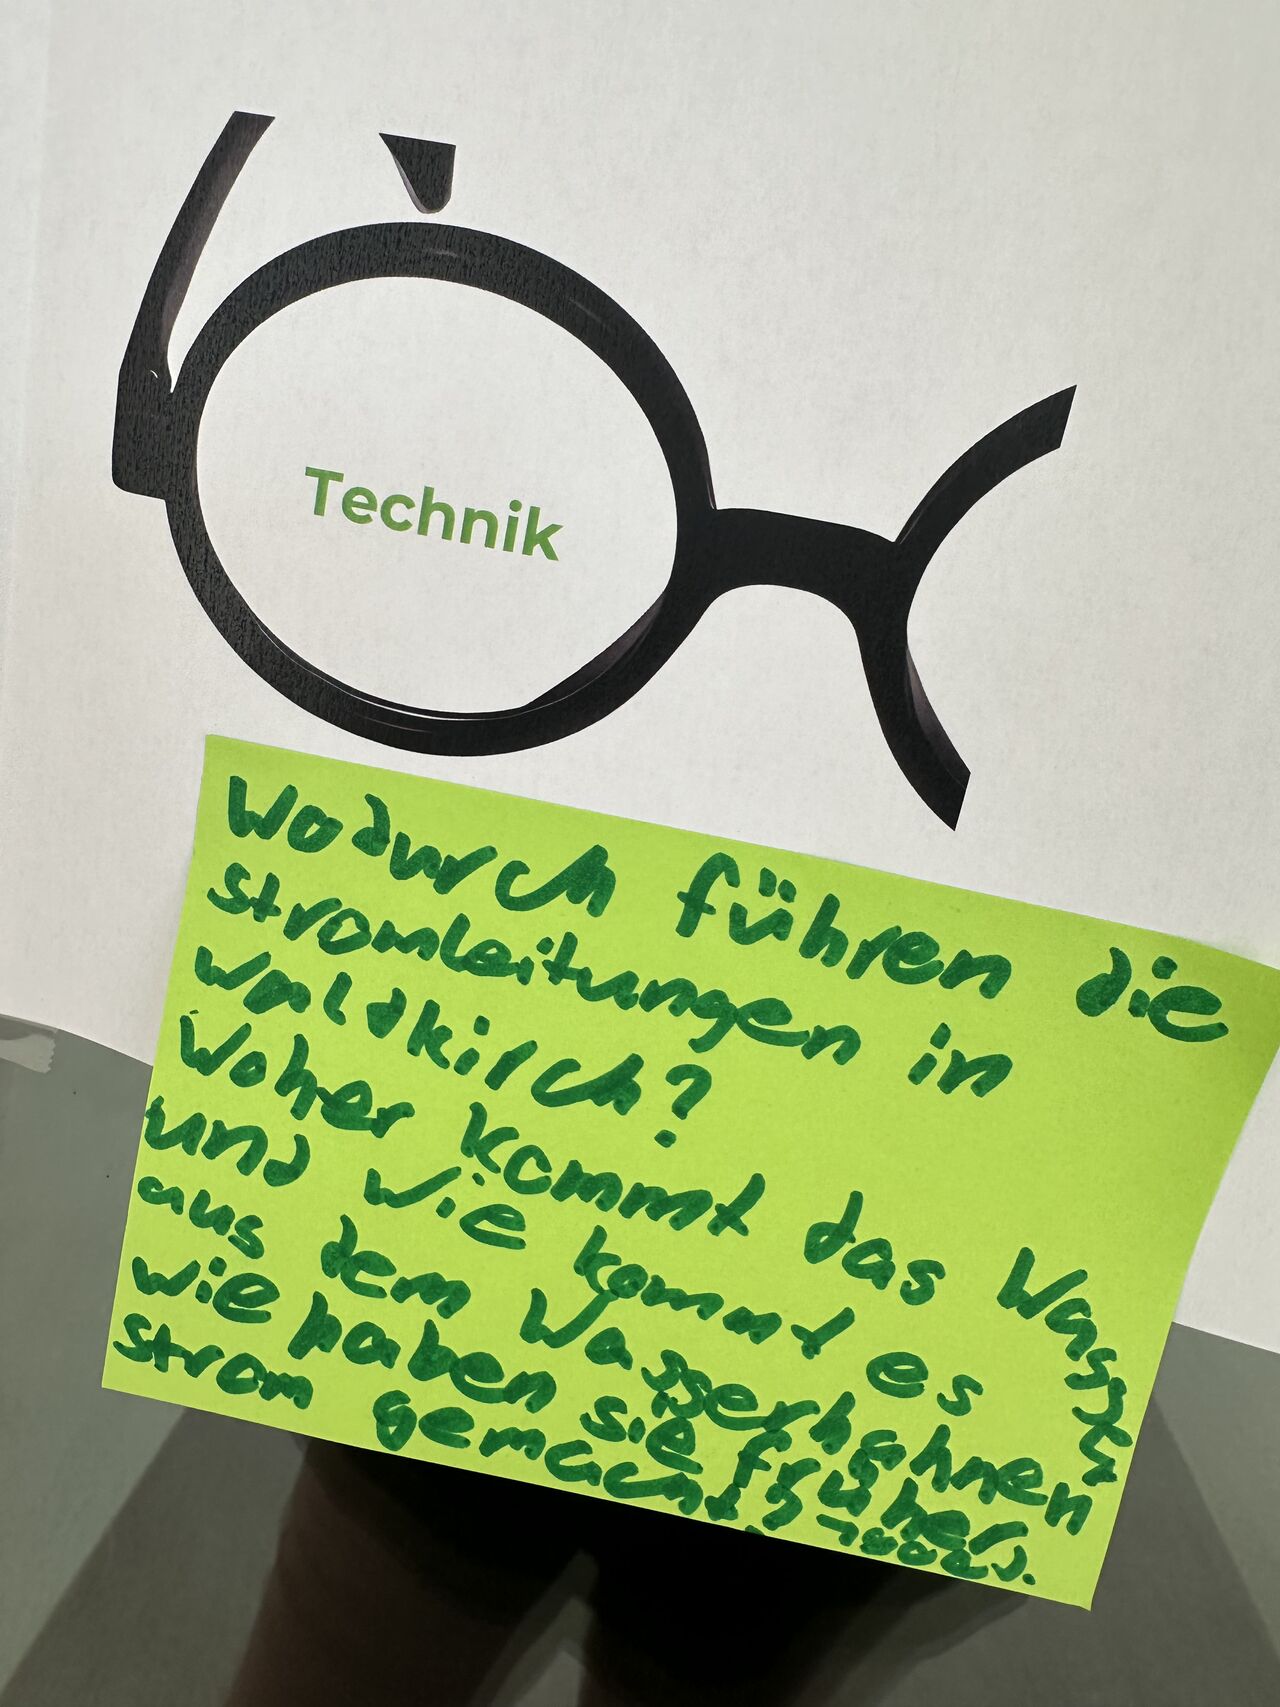 Technik
Wodurch führen die
stromleitungen in
Waldkirch?
Woher kommt das Wasser
und wie kommt es
aus dem Wasserhahnen
wie haben sie früher
strom gemacht?